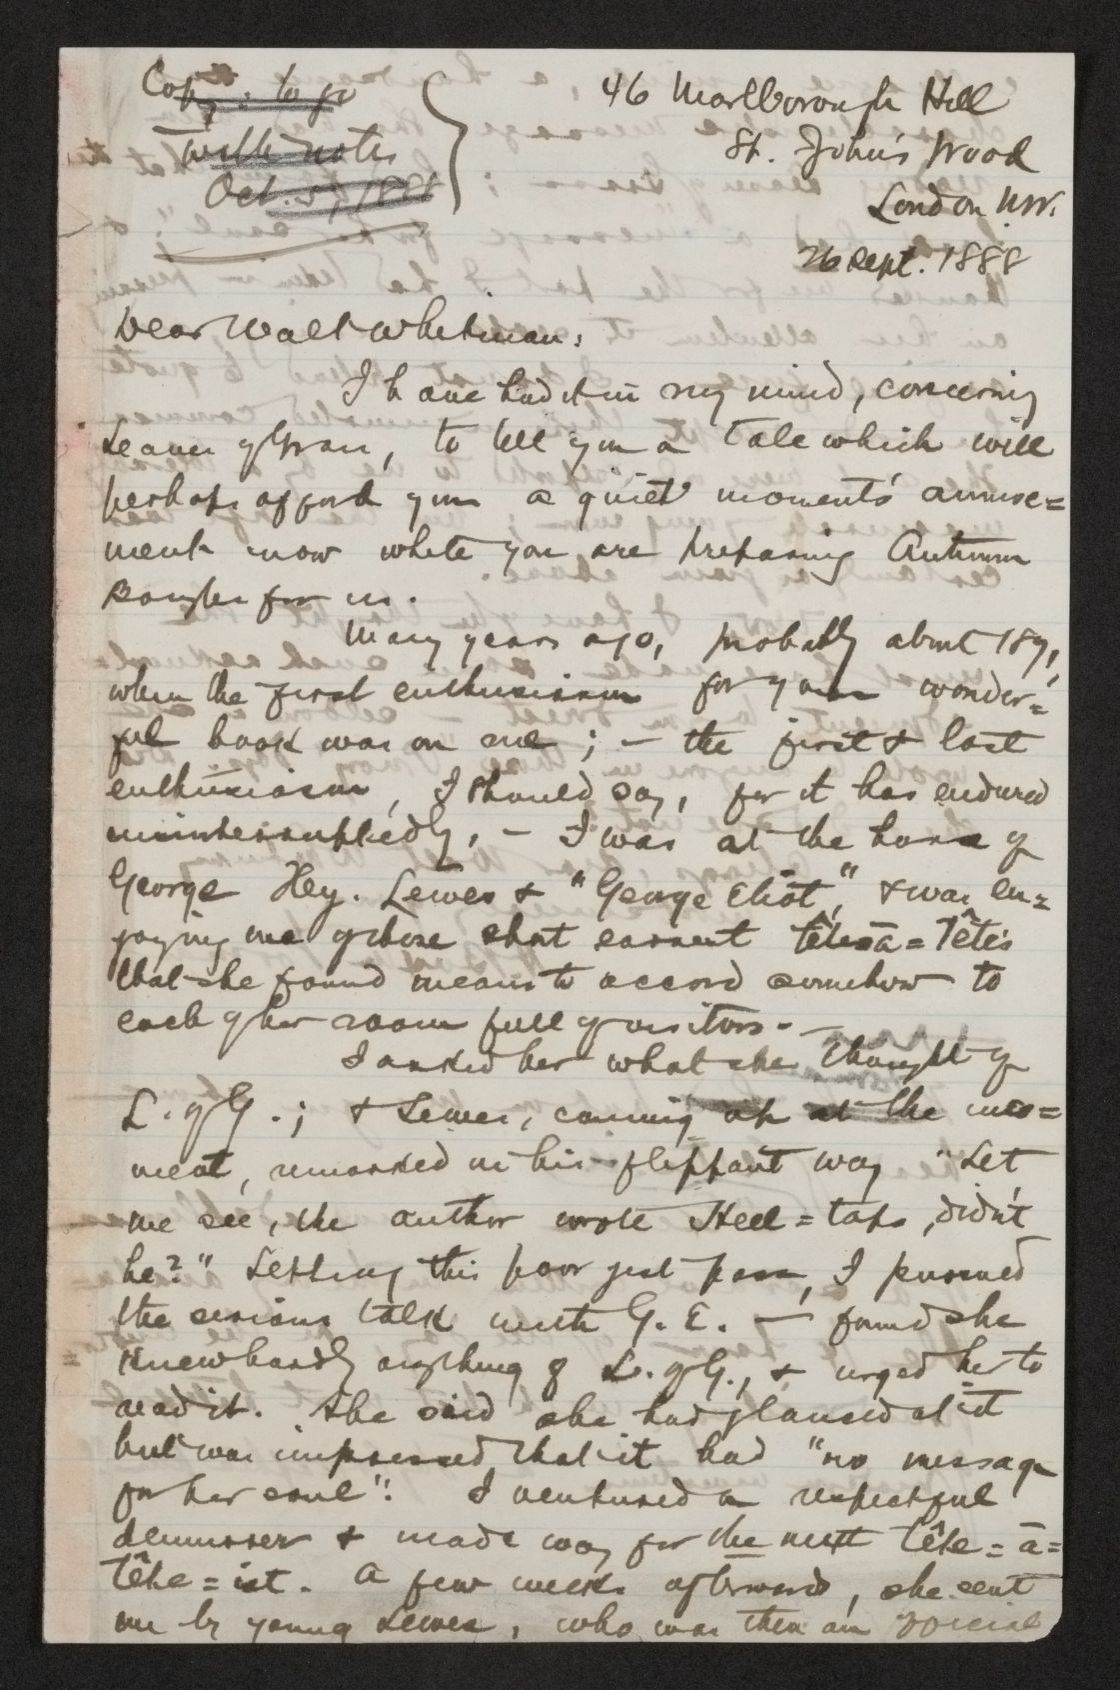 Copy: to go
with notes
Oct. 5, 1888
46 Marlborough Hill
St. John's Wood
London N.W.
26 Sept. 1888
Dear Walt Whitman:
I have had it in my mind, concerning
Leaves of Grass, to tell you a tale which will
perhaps afford you a quiet moment's amuse=
ment now while you are preparing Autumn
Boughs for us.
Many years ago, probably about 187,
when the first enthusiasm for your wonder=
ful book was on me; — the first & last
enthusiasm, I should say, for it has endured
uninterruptedly, — I was at the house of
George Hey. Lewes & "George Eliot", & was en=
joying one of those short earnest têtes=à=têtes
that she found means to accord somehow to
each of her room full of visitors.—
I asked her what she thought of
L. of G.; & Lewes, coming up at the mo=
ment, remarked in his flippant way "Let
me see, the author wrote Heel=taps, didn't
he?" Letting this poor jest pass, I pursued
the serious talk with G. E. — found she
knew hardly anything of L. of G., & urged her to
read it. She said she had glanced at it
but was impressed that it had "no message
for her soul". I ventured a respectful
demurrer & made way for the next tête=à=
tête=ist. A few weeks afterwards, she sent
me by young Lewes, who was then an official